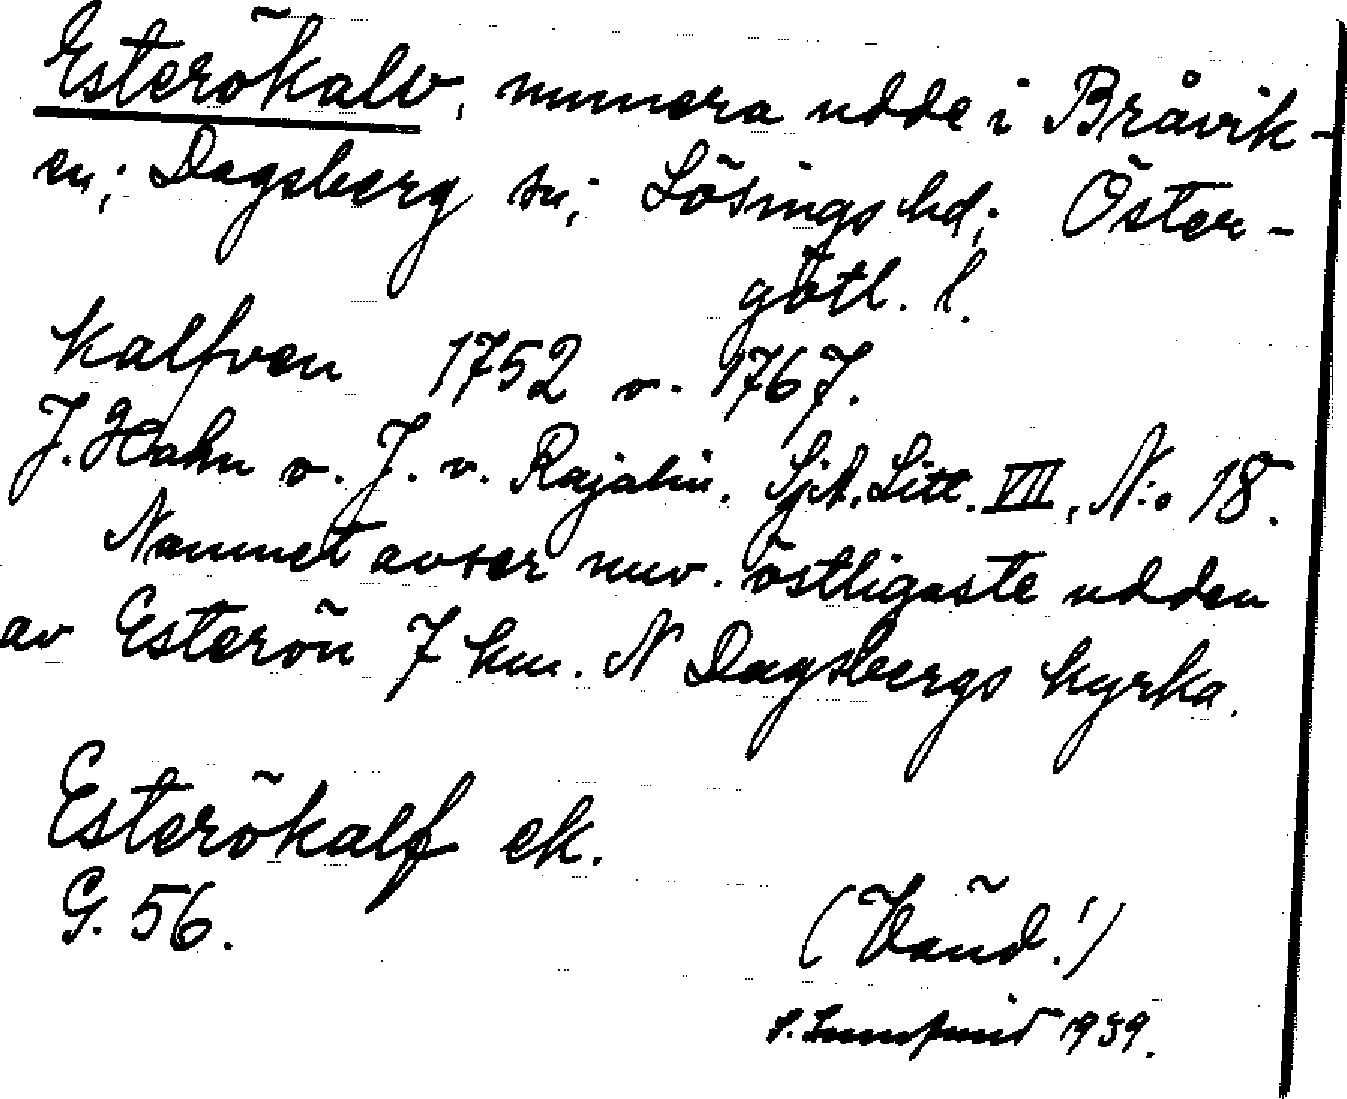 Esterökalv, numera udde i Bråvik-
en; Dagsberg sn; Lösings hd; Öster-
götl. l.
Kalfven 1752 o. 1767.
J. Hahn o. J. v. Rajalin. SjA. Litt. VII, N:o 18.
Namnet avser nuv. östligaste udden
av Esterön 7 km. N Dagsbergs kyrka.
Esterökalf ek.
G. 56.
(Vänd!)
1939.